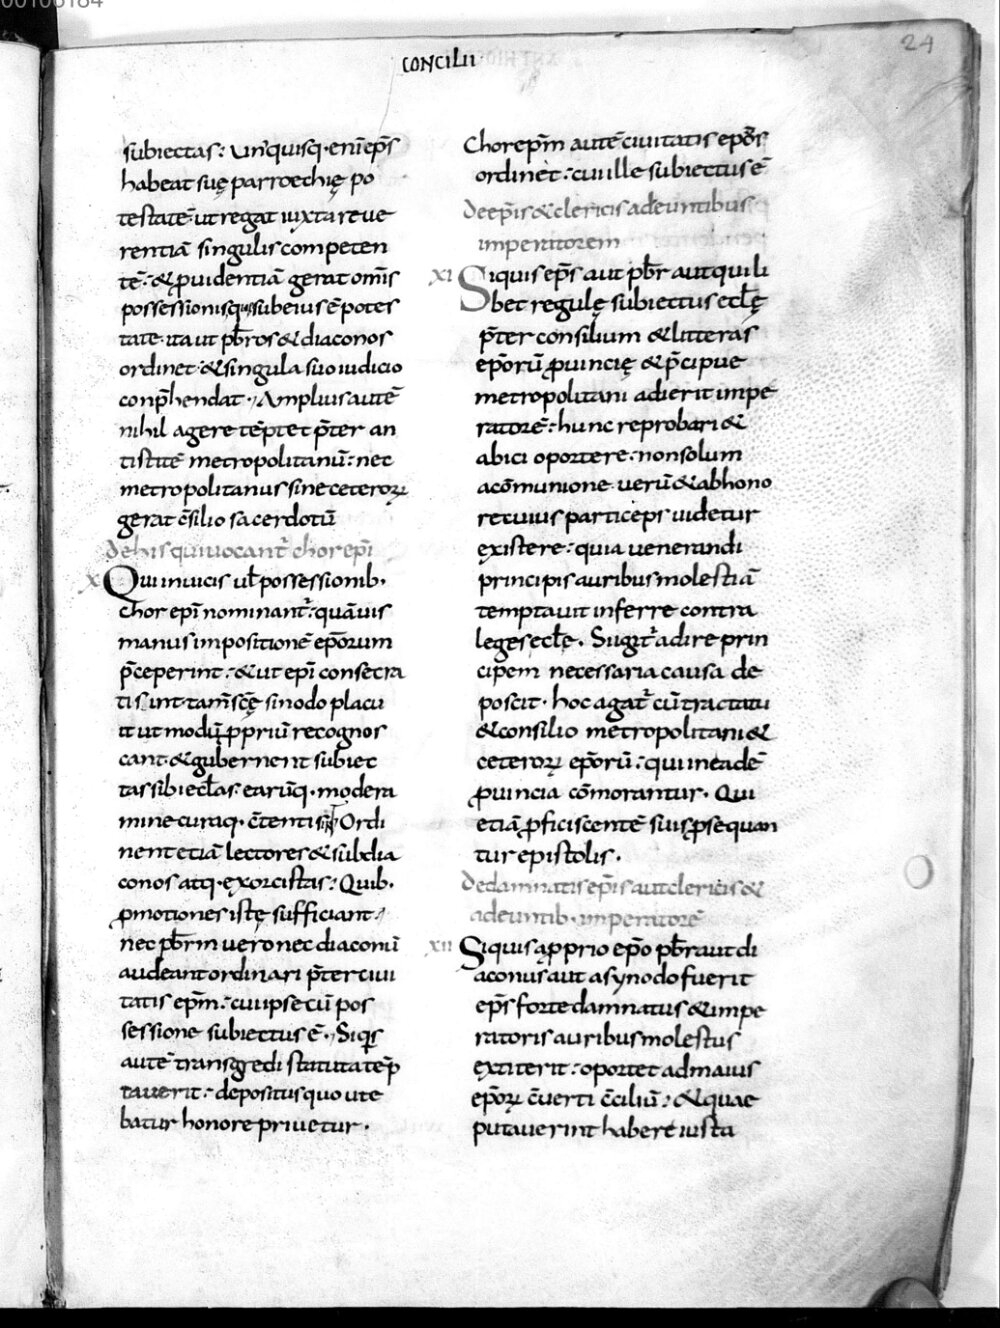 00106184
24
CONCILII
subiectas: Unusquisq· enī ep̄s
habeat suę parroechię po
testatē· ut regat iuxta reue
rentiā singulis competen
tē· & ꝓuidentiā gerat omīs
possessionis quę sub eius ē potes
tate· ita ut pb̄ros & diaconos
ordinet· & singula suo iudicio
conp̄hendat· Amplius autē
nihil agere tēptet p̄ter an
tistitē metropolitanū: nec
metropolitanus sine ceteroꝝ
gerat c̄silio sacerdotū
de his qui uocant̄ chorepī
X Qui in uicis ul̄ possessionib·
chorepī nominant̄: quāuis
manus impositionē ep̄orum
p̄ceperint: & ut epī consecra
ti sint· tam̄ sc̄ę sinodo placu
it ut modū ꝓpriū recognos
cant· & gubernent subiec
tas sibi ecl̄as· earūq· modera
mine curaq· c̄tenti sint Ordi
nent etiā lectores & subdia
conos atq· exorcistas: Quib·
ꝓmotiones istę sufficiant·
nec pb̄rm uero nec diaconū
audeant ordinari p̄ter ciui
tatis ep̄m: cui ipse cū pos
sessione subiectus ē· Siq̄s
autē transgredi statuta tēp
tauerit: depositus quo ute
batur honore priuetur·
Chorep̄m autē ciuitatis ep̄s
ordinet: cui ille subiectus ē
de ep̄is & clericis adeuntibus
imperatorem
XI Siquis ep̄s aut pb̄r aut quili
bet regulę subiectus ecl̄ę
p̄ter consilium & litteras
ep̄orū ꝓuincię & p̄cipue
metropolitani adierit impe
ratorē: hunc reprobari &
abici oportere: non solum
a cōmunione· uerū & ab hono
re cuius particeps uidetur
existere: quia uenerandi
principis auribus molestiā
temptauit inferre contra
leges ecl̄ę· Si igit̄ adire prin
cipem necessaria causa de
poscit· hoc agat̄ cū tractatu
& consilio metropolitani &
ceteroꝝ ep̄orū: qui in eadē
ꝓuincia cōmorantur· Qui
etiā ꝓficiscentē suis ꝓsequan
tur epistolis·
de damnatis ep̄is aut clericis &
adeuntib· imperatorē
XII Siquis a ꝓprio ep̄o pb̄r aut di
aconus aut a synodo fuerit
ep̄s forte damnatus & impe
ratoris auribus molestus
extiterit: oportet ad maius
ep̄oꝝ c̄uerti c̄ciliū: & quae
putauerint habere iusta